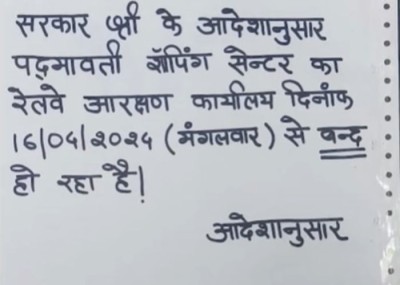 सरकार श्री के आदेशानुसार
पद्मावती शॅापिंग सेन्टर का
रेलवे आरक्षण कार्यालय दिनांक
16/04/2024 (मंगलवार) से बन्द
हो रहा है।
आदेशानुसार